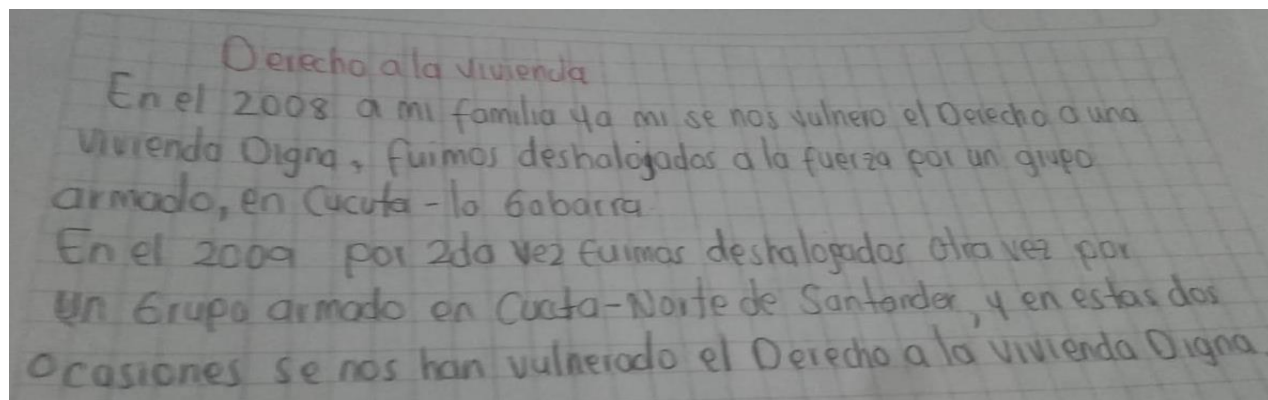 Derecho a la vivienda
En el 2008 a mi familia ya mi se nos vulnero el Derecho a una
vivienda Digna, fuimos deshalogados a la fuerza por un grupo
armado, en Cucuta-la Gabarra
En el 2009 por 2da vez fuimos deshalogados otra vez por
un Grupo armado en Cucuta-Norte de Santander, y en estas dos
Ocasiones se nos han vulnerado el Derecho a la vivienda Digna